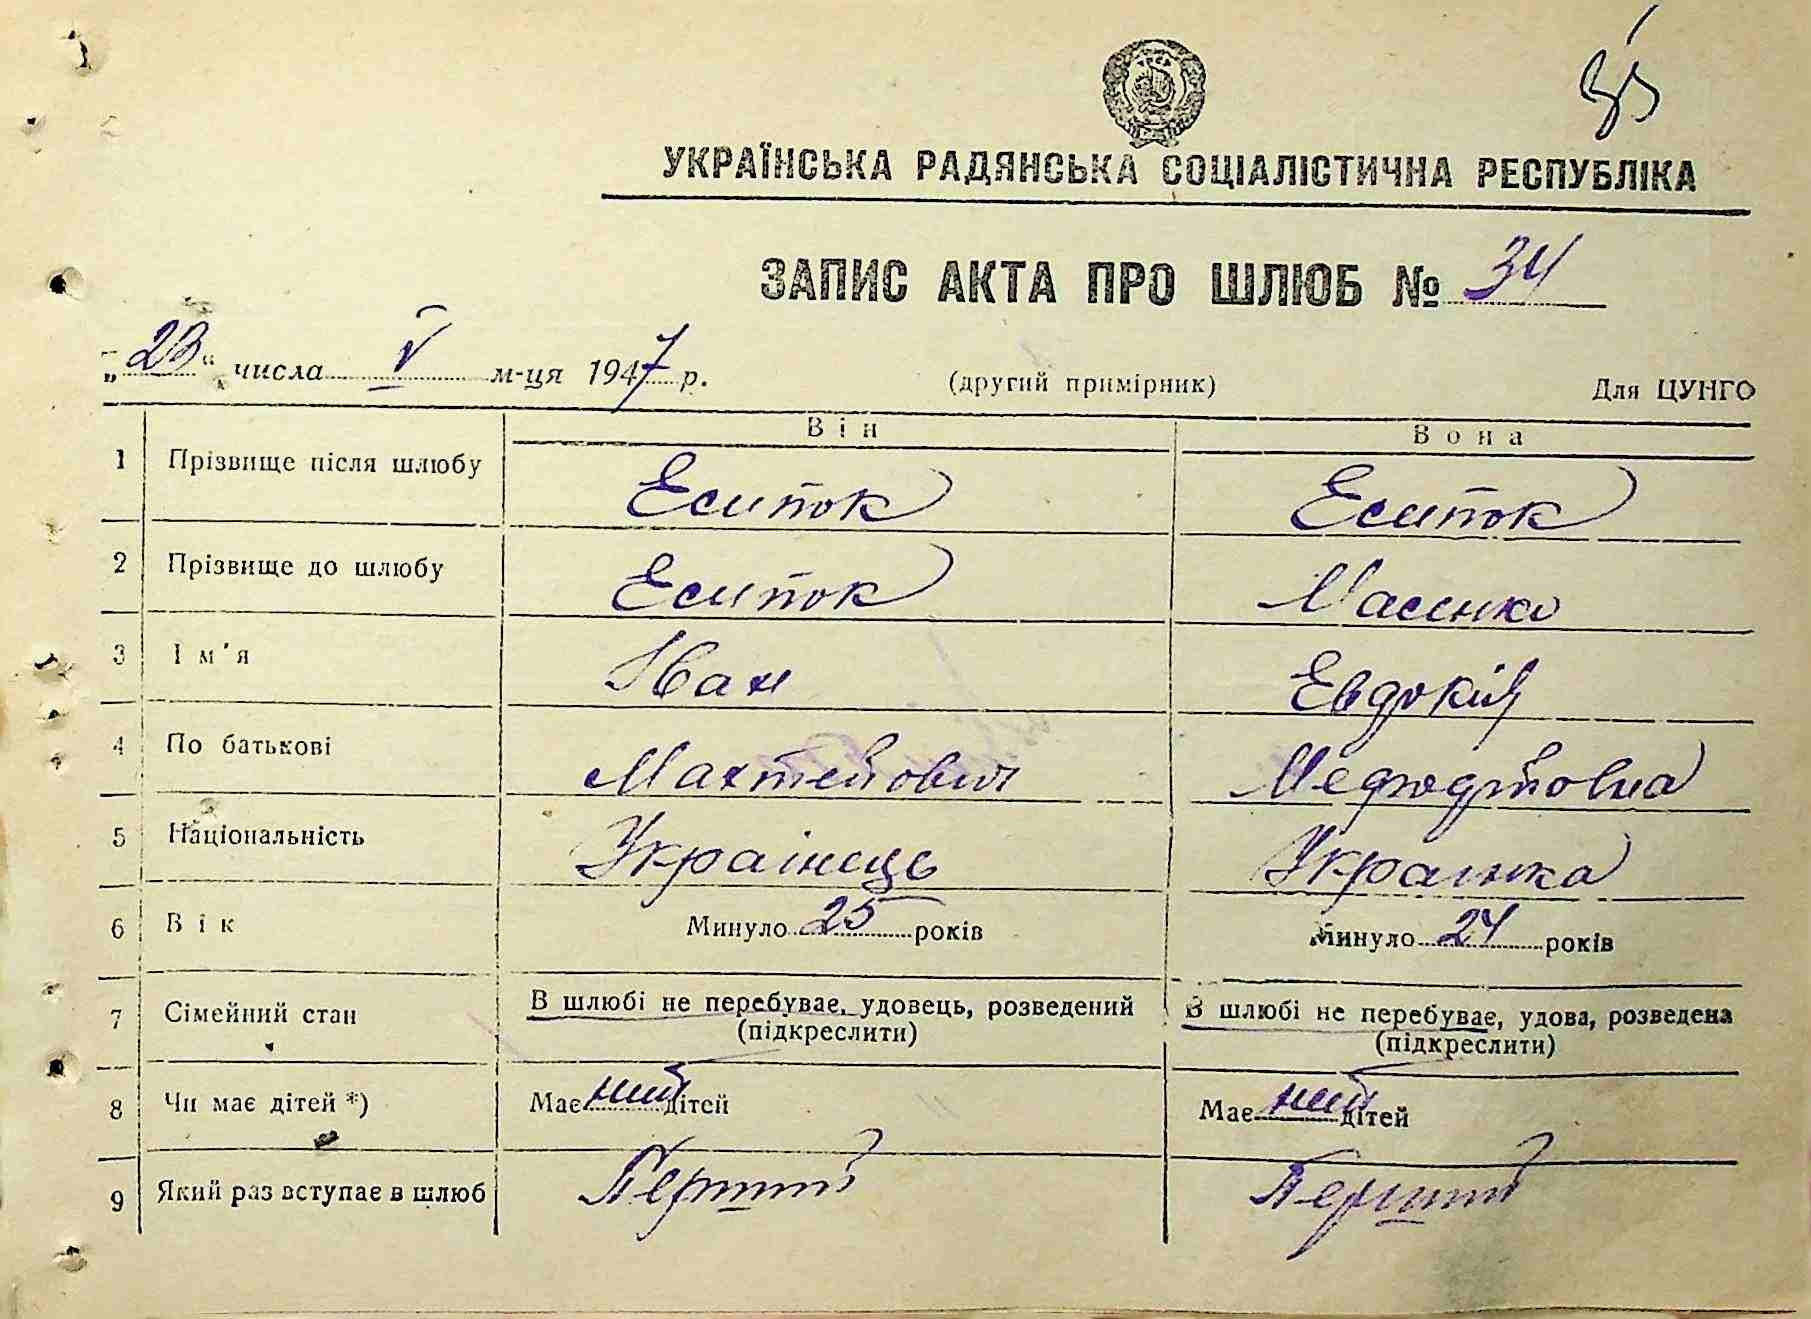 85
УКРАЇНСЬКА РАДЯНСЬКА СОЦІАЛІСТИЧНА РЕСПУБЛІКА
ЗАПИС АКТА ПРО ШЛЮБ № 34
„23“ числа V м-ця 1947 р. (другий примірник) Для ЦУНГО
Він Вона
1 Прізвище після шлюбу Есипок Есипок
2 Прізвище до шлюбу Есипок Масенко
3 Ім'я Іван Евдокія
4 По батькові Махтейович Мефодтовна
5 Національність Украінець Украинка
6 Вік Минуло 25 років Минуло 24 років
7 Сімейний стан В шлюбі не перебуває, удовець, розведений (підкреслити) В шлюбі не перебуває, удова, розведена (підкреслити)
8 Чи має дітей *) Має дітей Має дітей
9 Який раз вступає в шлюб Перший Перший